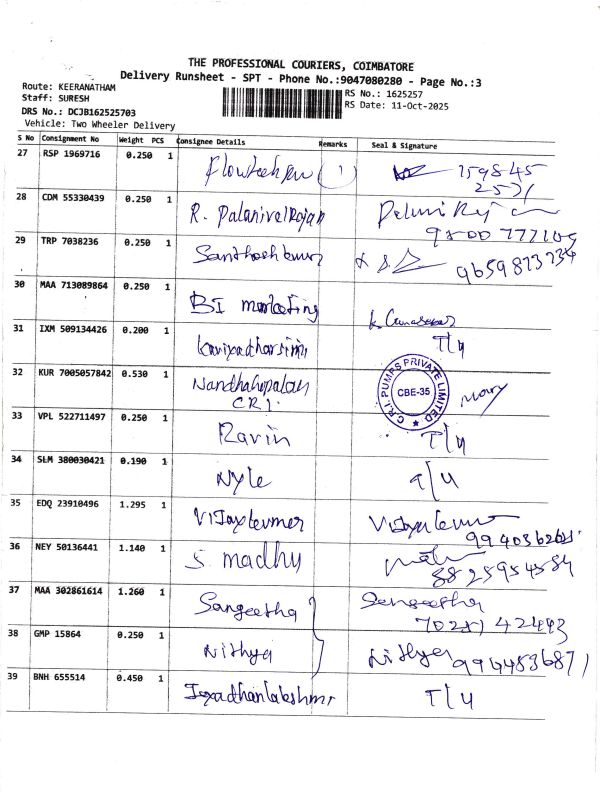 THE PROFESSIONAL COURIERS, COIMBATORE
Delivery Runsheet - SPT - Phone No.:9047080280 - Page No.:3
Route: KEERANATHAM
Staff: SURESH
DRS No.: DCJB162525703
Vehicle: Two Wheeler Delivery
RS No.: 1625257
RS Date: 11-Oct-2025
S No Consignment No Weight PCS Consignee Details Remarks Seal & Signature
27 RSP 1969716 0.250 1
28 CDM 55330439 0.250 1 R. Palanivelrajan
29 TRP 7038236 0.250 1 Santhosh kumar
30 MAA 713089864 0.250 1 BI marketing
31 IXM 509134426 0.200 1 T/4
32 KUR 7005057842 0.530 1 Nandhagopalan
CRI.
C.R.I. PUMPS PRIVATE LIMITED
CBE-35
Mary
33 VPL 522711497 0.250 1 Ravin T/4
34 SLM 380030421 0.190 1 Nyle T/4
35 EDQ 23910496 1.295 1 Vijaykumar
36 NEY 50136441 1.140 1 S. madhu
37 MAA 302861614 1.260 1 Sangeetha Sangeetha
38 GMP 15864 0.250 1 Nithya Nithya
39 BNH 655514 0.450 1 T/4